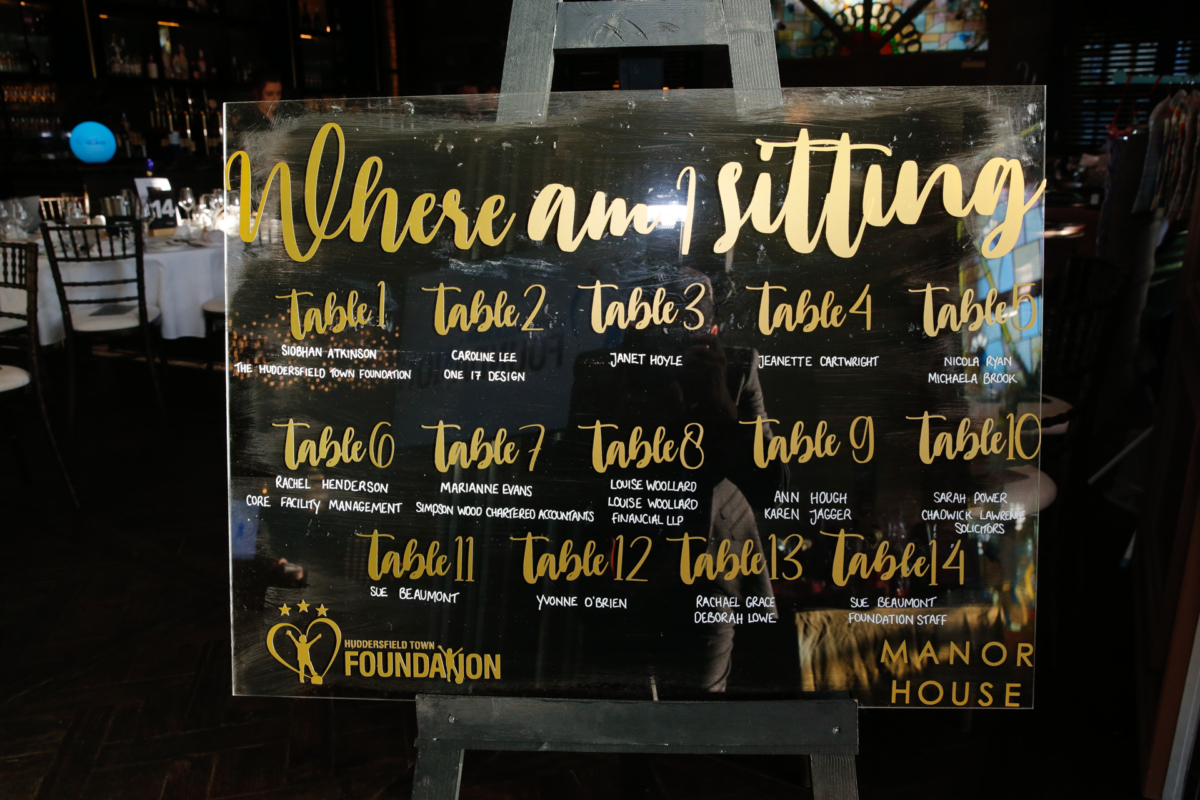 Where am I sitting
Table 1
SIOBHAN ATKINSON
THE HUDDERSFIELD TOWN FOUNDATION
Table 2
CAROLINE LEE
ONE 17 DESIGN
Table 3
JANET HOYLE
Table 4
JEANETTE CARTWRIGHT
Table 5
NICOLA RYAN
MICHAELA BROOK
Table 6
RACHEL HENDERSON
CORE FACILITY MANAGEMENT
Table 7
MARIANNE EVANS
SIMPSON WOOD CHARTERED ACCOUNTANTS
Table 8
LOUISE WOOLLARD
LOUISE WOOLLARD
FINANCIAL LLP
Table 9
ANN HOUGH
KAREN JAGGER
Table 10
SARAH POWER
CHADWICK LAWRENCE
SOLICITORS
Table 11
SUE BEAUMONT
Table 12
YVONNE O'BRIEN
Table 13
RACHAEL GRACE
DEBORAH LOWE
Table 14
SUE BEAUMONT
FOUNDATION STAFF
HUDDERSFIELD TOWN
FOUNDATION
MANOR
HOUSE
14